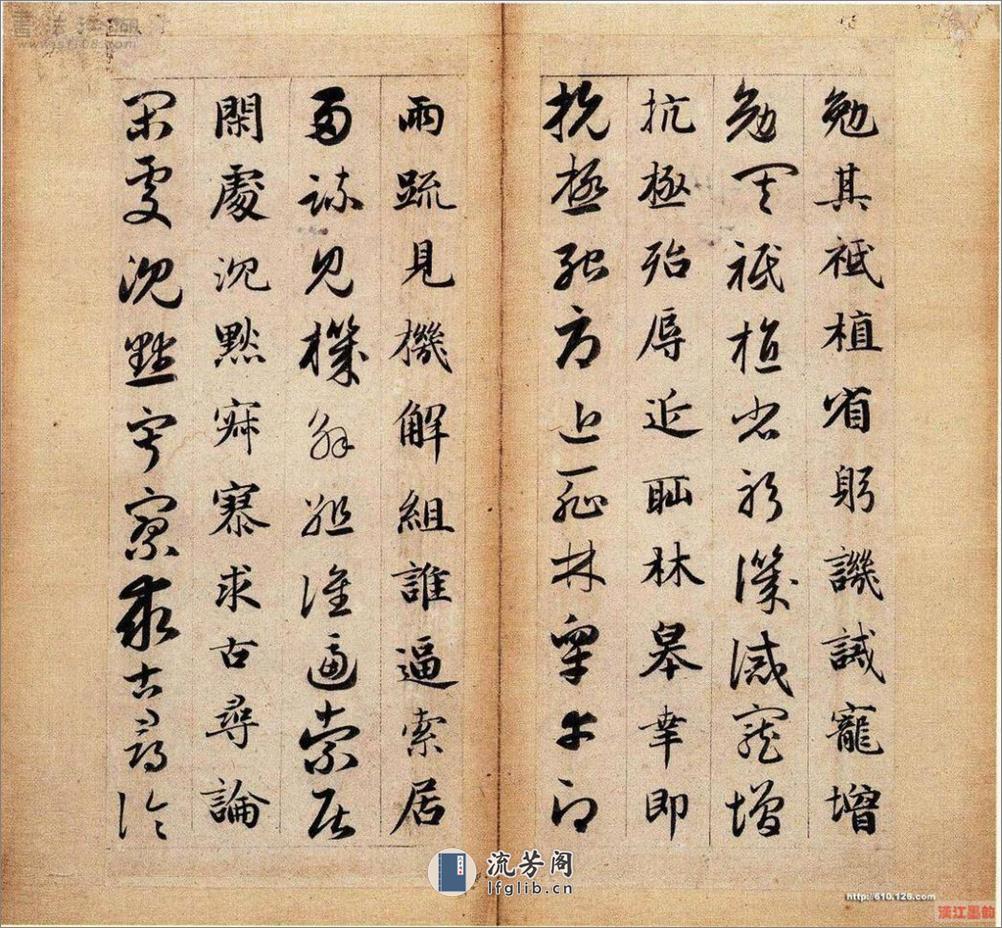 勉其祗植省躬譏誡寵增
勉其祗植省躬譏誡寵增
抗極殆辱近耻林皐幸即
抗極殆辱近耻林皐幸即
兩疏見機解組誰逼索居
兩疏見機解組誰逼索居
閑處沉默寂寥求古尋論
閑處沉默寂寥求古尋論
書法江湖
流芳阁
lfglib.cn
http://610.126.com
漢江墨韵